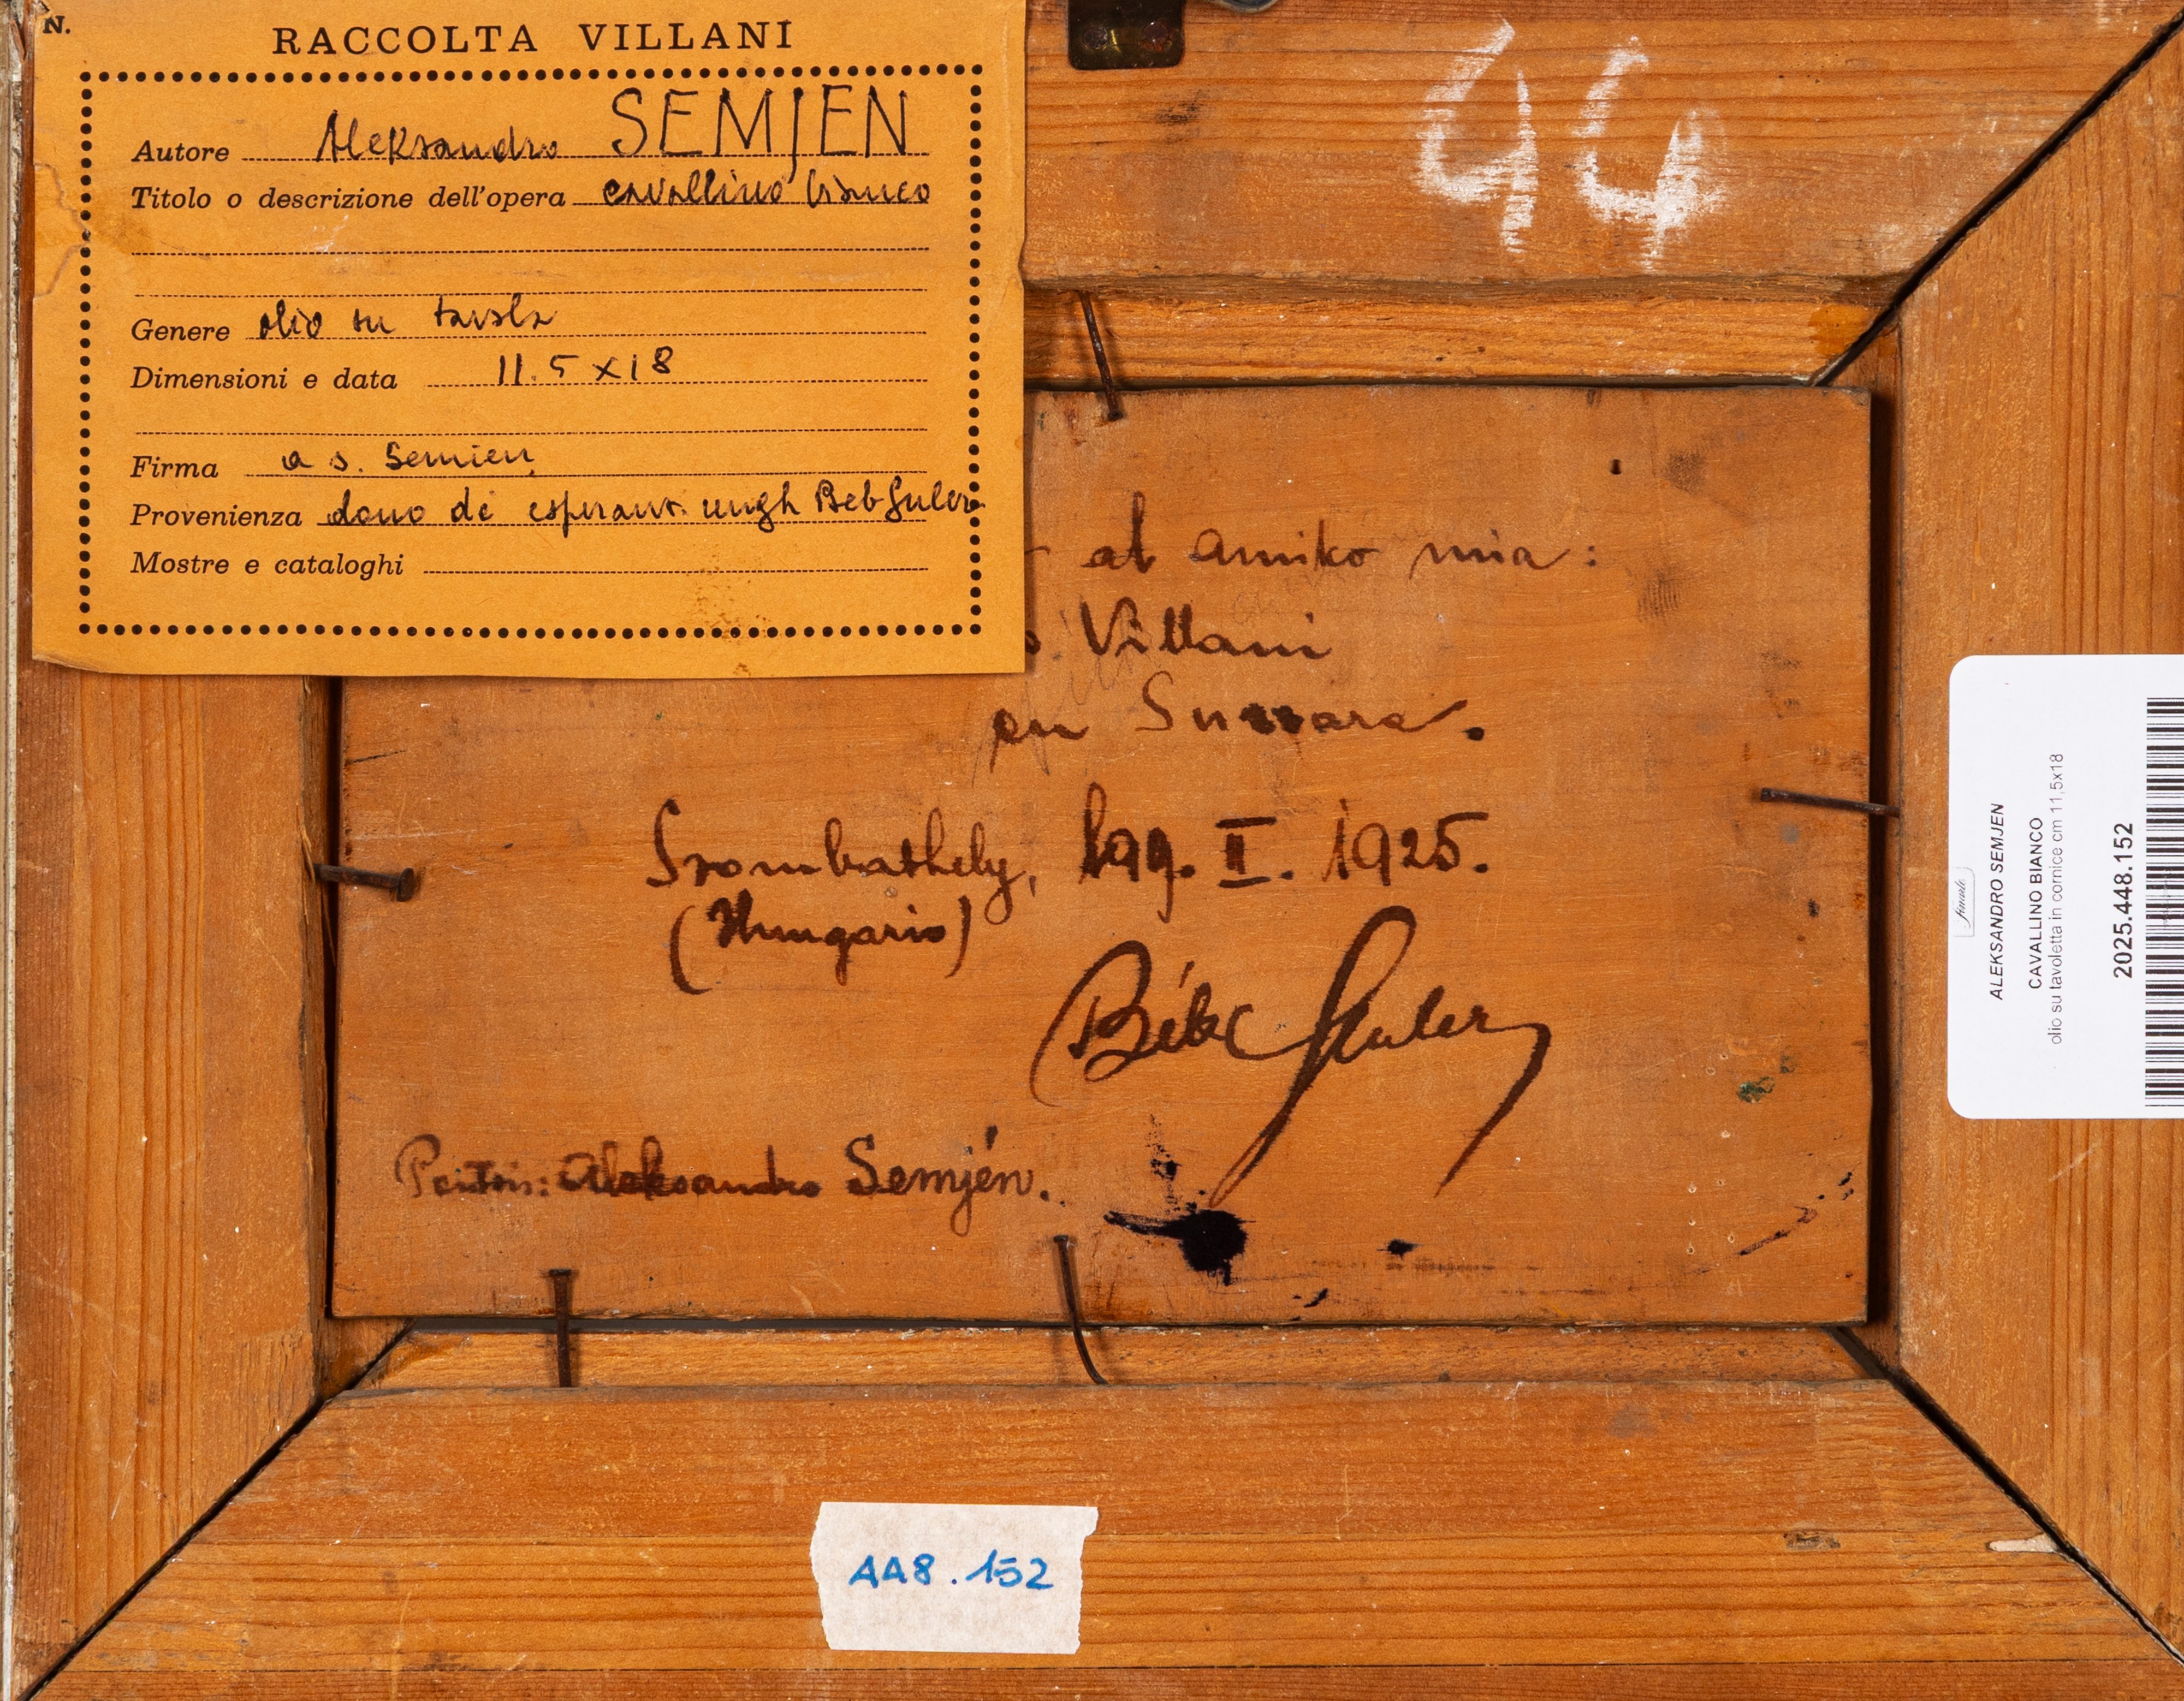 N.
RACCOLTA VILLANI
Autore Aleksandro SEMJEN
Titolo o descrizione dell'opera cavallino bianco
Genere olio su tavola
Dimensioni e data 11.5 x 18
Firma a s. Semien
Provenienza dono de esperant. ungh Beb Guler
Mostre e cataloghi
44
al amiko mia:
Villani
en
Szombathely, II. 1925.
(Hungario)
Guler
Aleksandro Semjén.
ALEKSANDRO SEMJEN
CAVALLINO BIANCO
olio su tavoletta in cornice cm 11,5x18
2025.448.152
448.152